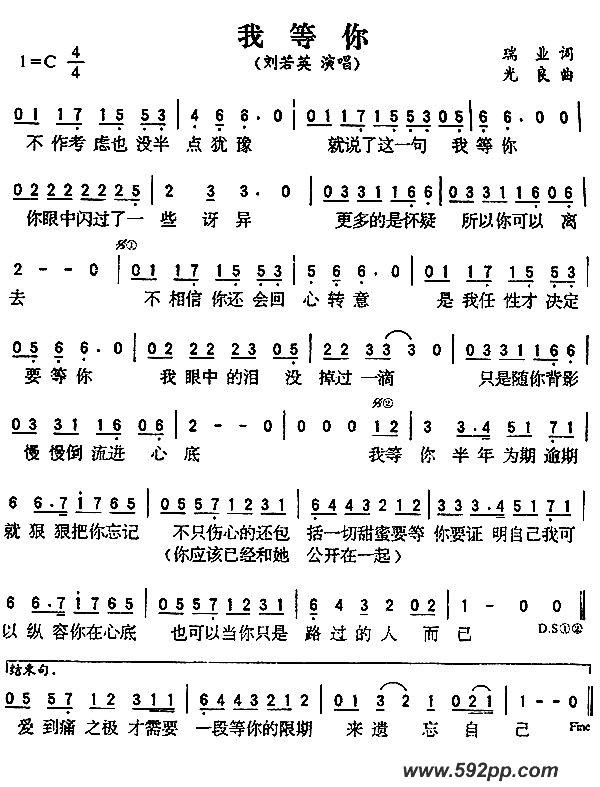 我 等 你
(刘若英 演唱)
1=C 4/4
瑞 业 词
光 良 曲
01 17 15 53 | 4 6 6. 0 | 0117155305 | 6 6. 0 0 |
不作考虑也没半 点犹豫 就说了这一句 我等你
02222225 | 2 3 3. 0 | 03311166 | 03311606 |
你眼中闪过了一 些 讶 异 更多的是怀疑 所以你可以 离
2 - - 0 | 01 17 15 53 | 5 6 6. 0 | 01 17 15 53 |
去 不相信你还会回 心转意 是我任性才决定
05 6 6. 0 | 02 22 23 05 | 22 33 3 0 | 03311166 |
要等你 我眼中的泪 没 掉过一滴 只是随你背影
03 31 16 06 | 2 - - 0 | 0 0 0 12 | 3 3.4 51 71 |
慢慢倒流进 心 底 我等 你 半年为期逾期
6 6.7 1765 | 05571231 | 64432212 | 333.4 5171 |
就狠狠把你忘记 不只伤心的还包 括一切甜蜜要等 你要证 明自己我可
(你应该已经和她 公开在一起)
6 6.7 1765 | 05571231 | 6 43 2 02 | 1 - 0 0
以纵容你在心底 也可以当你只是 路过的人 而 己 D.S①②
结束句。
05 57 12 33 | 64432212 | 01 32 1 021 | 1 - - 0
爱到痛之极才需要 一段等你的限期 来遗 忘 自 己 Fine
www.592pp.com